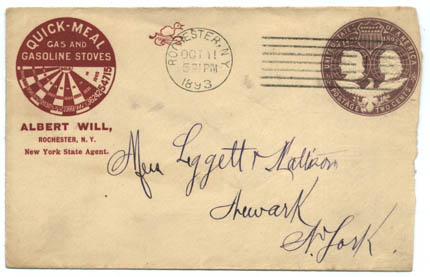 QUICK-MEAL
GAS AND
GASOLINE STOVES
ALBERT WILL,
ROCHESTER, N. Y.
New York State Agent.
ROCHESTER, N.Y.
OCT 11
PM
1893
UNITED STATES OF AMERICA
POSTAGE TWO CENTS
Leggett &
Newark
N. York.